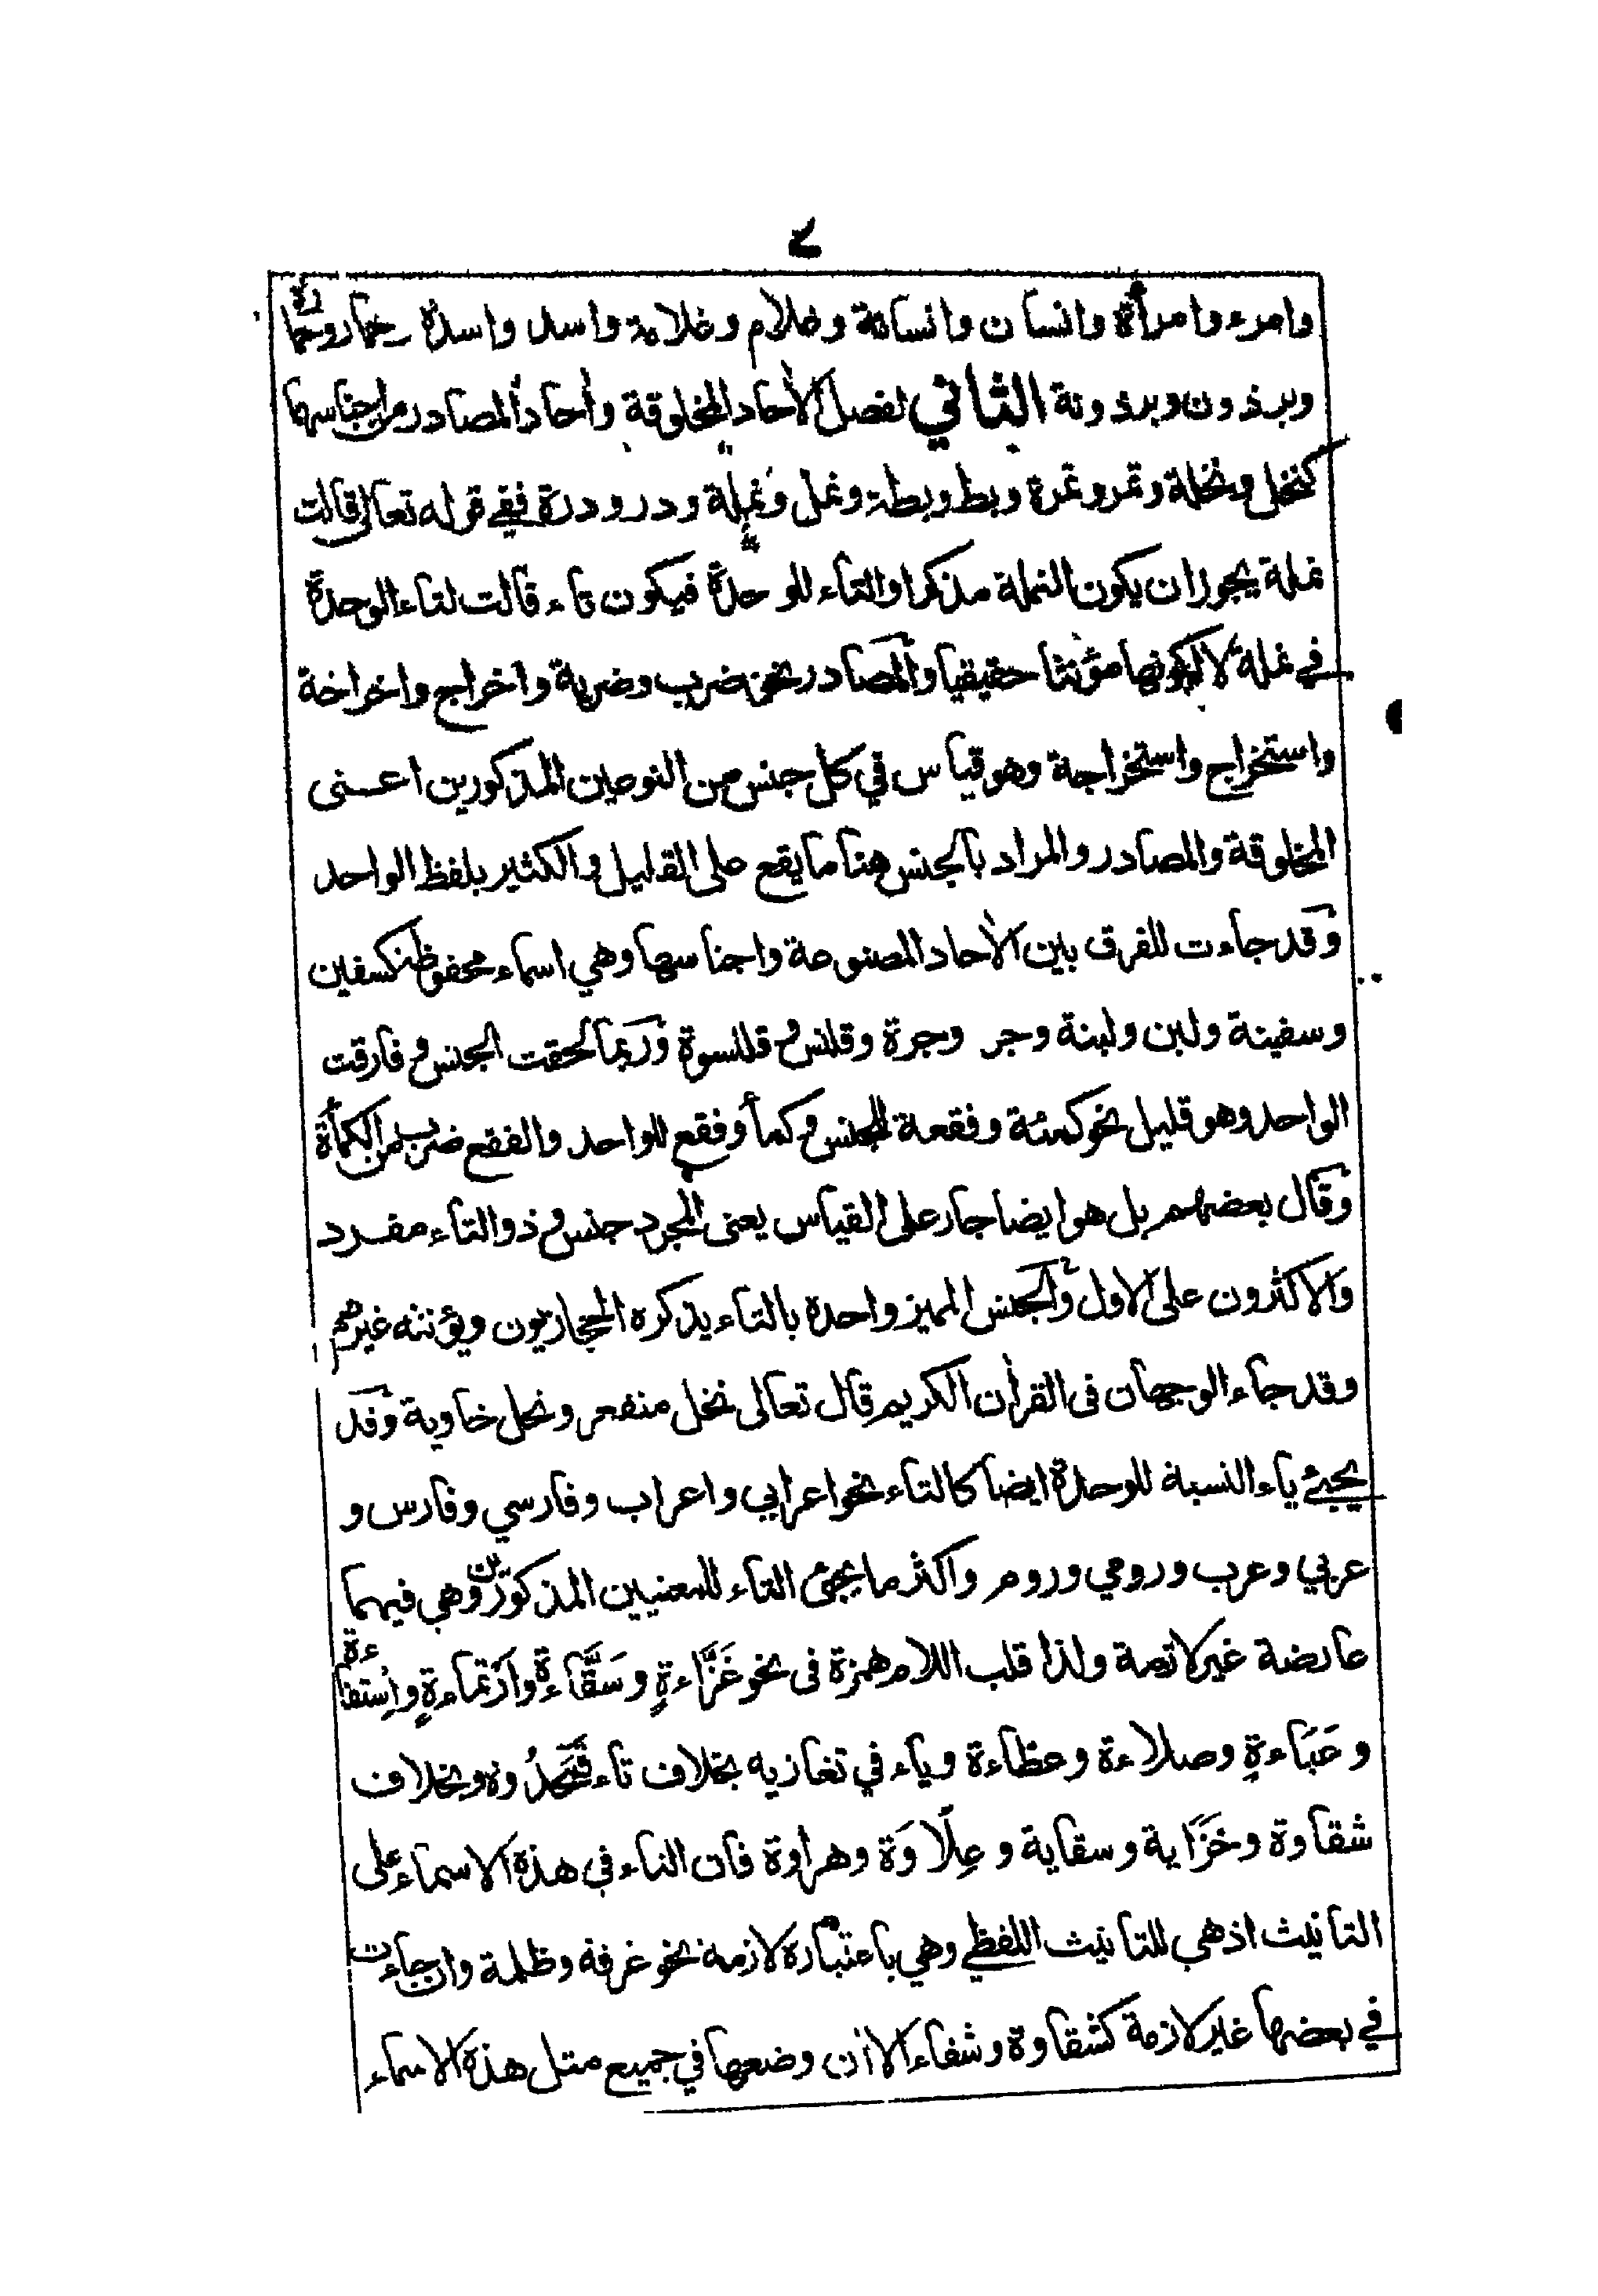 ٤
وامرء وامرأة وانسان وانسانة وغلام وغلامة واسد واسدة حمار وحمارة
وبرذون وبرذونة الثاني لفصل الأحاد المخلوقة وأحاد المصادر من اجناسها
كنخل ونخلة وتمر وتمرة وبط وبطة ونمل ونملة ودر ودرة ففي قوله تعالى قالت
نملة يجوز ان يكون النملة مذكرا والتاء للوحدة فيكون تاء قالت لتاء الوحدة
في نملة لا لكونها مؤنثا حقيقيا والمصادر نحو ضرب وضربة واخراج واخراجة
واستخراج واستخراجة وهو قياس في كل جنس من النوعين المذكورين اعنى
المخلوقة والمصادر والمراد بالجنس هنا ما يقع على القليل والكثير بلفظ الواحد
وقد جاءت للفرق بين الأحاد المصنوعة واجناسها وهي اسماء محفوظة كسفين
وسفينة ولبن ولبنة وجر وجرة وقلنس وقلنسوة وربما لحقت الجنس وفارقت
الواحد وهو قليل نحو كمئة وفقعة للجنس وكمأ وفقع للواحد والفقع ضرب من الكمأة
وقال بعضهم بل هو ايضا جار على القياس يعنى المجرد جنس وذو التاء مفرد
والاكثرون على الاول والجنس المميز واحدة بالتاء يذكره الحجازيون ويؤنثه غيرهم
وقد جاء الوجهان فى القرأن الكريم قال تعالى نخل منقعر ونخل خاوية وقد
يجئ ياء النسبة للوحدة ايضا كالتاء نحو اعرابي واعراب وفارسي وفارس و
عربي وعرب ورومي وروم واكثر ما يجئ التاء للمعنيين المذكورين وهي فيهما
عارضة غير لازمة ولذا قلب اللام همزة فى نحو غَزَّاءةٍ وسَقَّاءةٍ وارتماءةٍ واستقاءة
وعَبَاءةٍ وصلاءة وعظاءة وياء في تغازيه بخلاف تاء قمحدوة وبخلاف
شقاوة وخزاية وسقاية وعِلاوَة وهراوة فان التاء في هذه الاسماء على
التانيث اذ هي للتانيث اللفظي وهي باعتباره لازمة نحو غرفة وظلمة وان جاءت
في بعضها غير لازمة كشقاوة وشقاء الا أن وضعها في جميع مثل هذه الاسماء